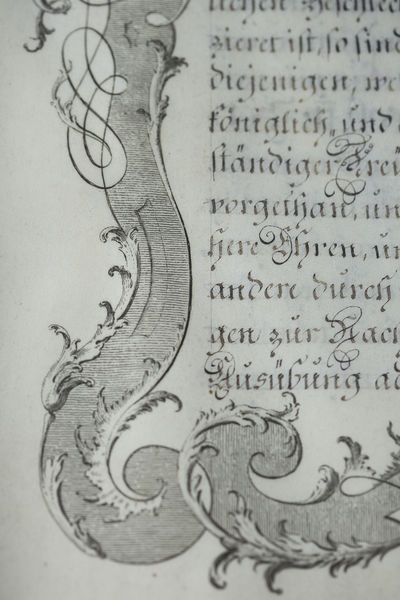 zieret ist, so sind
diejenigen, we
königlich- und
ständiger Treü
vorgethan, un
here Ehren, un
andere durch
gen zur Nach
Ausübung ad